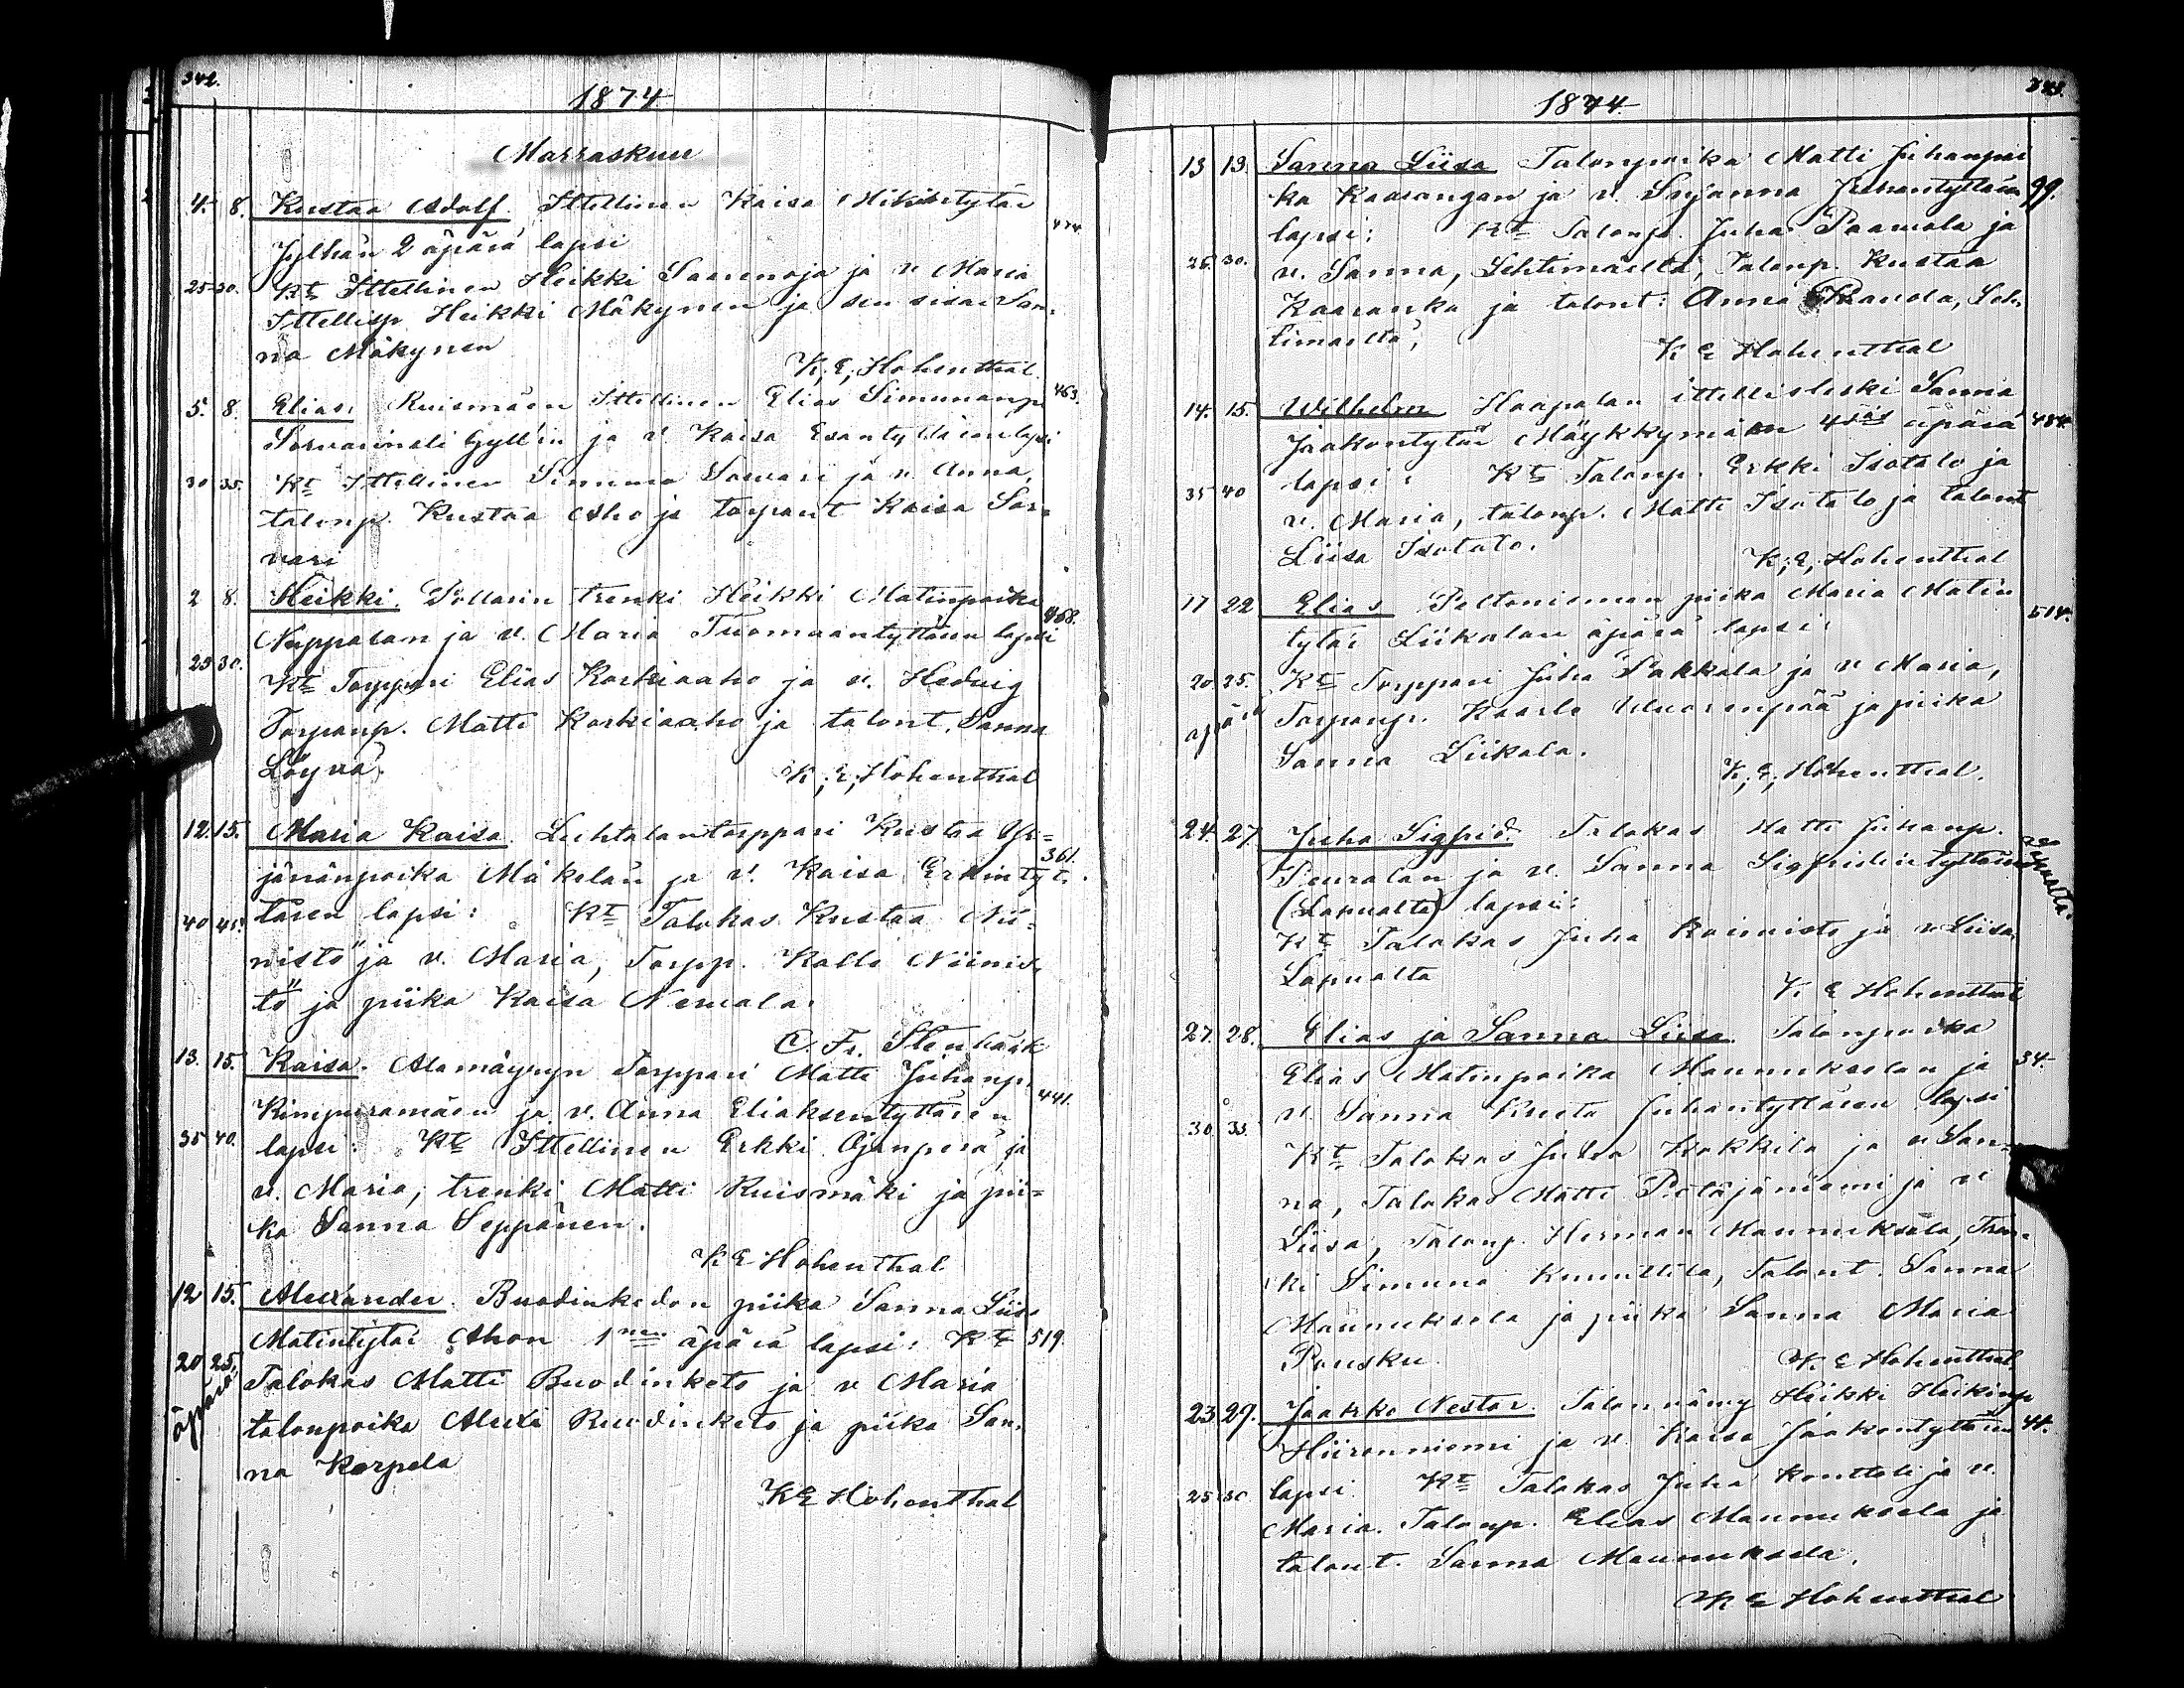 342.
1874
Marraskuu
4. 8. Kustaa Adolf. Ittellinen Kaisa Mikintytär
Jylhän 2 äpärä lapsi
25-30. Kt Ittellinen Heikki Saarenoja ja v Maria
Ittellisp Heikki Mäkynen ja sen sisar San-
na Mäkynen
K, E, Hohenthal.
5. 8. Elias. Ruismäen Ittellinen Elias Simunanp 463.
Sorvarinali Gyll'in ja v. Kaisa Esantyttären lapsi
30 35. Kt Ittellinen Simuna Sorvari ja v. Anna,
talonp. Kustaa Aho ja torpant Kaisa Sor-
vari
2 8. Heikki. Sollarin trenki Heikki Matinpoika 468.
Nuppalan ja v. Maria Tuomaantyttären lapsi
25 30.
Kt Torppari Elias Korkiaaho ja v. Hedvig
Torpanp. Matti Korkiaaho ja talont. Sanna
Löyvä. K, E, Hohenthal
12. 15. Maria Kaisa. Luhtalantorppari Kustaa Yr-
jänänpoika Mäkelän ja v. Kaisa Erkintyt- 361.
40 45. tären lapsi: Kt Talokas Kustaa Nii-
nistö ja v. Maria, Torpp. Kalle Niinis-
tö ja piika Kaisa Nemala.
C. Fr. Stenbäck
13. 15. Kaisa. Alamäyryn Torppari Matti Juhanp. 441.
Kimpuramäen ja v. Anna Eliaksentyttären
35 40. lapsi: Kt Ittellinen Erkki Ojanperä ja
v. Maria, trenki Matti Ruismäki ja pii-
ka Sanna Seppänen.
K E Hohenthal
12 15. Alexander. Buodinkedon piika Sanna Liisa
Matintytär Ahon 1nen äpärä lapsi: Kt 519.
20 25. Talokas Matti Buodinketo ja v Maria
äpärä. talonpoika Aleksi Buodinketo ja piika San-
na Korpela
K E Hohenthal
343.
1874.
13 19. Sanna Liisa Talonpoika Matti Juhanpoi
ka Kaarangan ja v. Susanna Juhantyttären 99.
lapsi: Kt Talonp. Juha Paavola ja
25. 30. v. Sanna, Lehtimäeltä, Talonp. Kustaa
Kaaranka ja talont: Anna Paavola, Leh-
timäeltä,
K E Hohenthal
14. 15. Wilhelm Haapalan ittellisleski Sanna
Jaakontytär Mäykkymäen 4jäs äpärä 484.
35 40 lapsi: Kt Talonp. Erkki Isotalo ja
v. Maria, talonp. Matti Isotalo ja talont
Liisa Isotalo.
K, E, Hohenthal
17 22 Elias Peltoniemen piika Maria Matin 514.
tytär Liikalan äpärä lapsi:
20 25. Kt Torppari Juha Pakkala ja v Maria,
äpärä Torpanp. Kaarle Wuorenpää ja piika
Sanna Liikala.
K, E, Hohenthal.
24. 27. Juha Sigfrid. Talokas Matti Juhanp.
Peuralan ja v. Sanna Sigfridintyttären Lapualta
(Lapualta) lapsi:
Kt Talokas Juha Koivisto ja v Liisa
Lapualta
K E Hohenthal
27. 28. Elias ja Sanna Liisa. Talonpoika
Elias Matinpoika Maunukselan ja 34.
v. Sanna Kreeta Juhantyttären lapsi
30. 35. Kt Talokas Juha Kokkila ja v San-
na, Talokas Matti Petäjäniemi ja v
Liisa, Talonp. Herman Maunuksela, Tren-
ki Simuna Knuuttila, Talont. Sanna
Maunuksela ja piika Sanna Maria
Pensku. K. E Hohenthal
23 29. Jaakko Nestor. Talonvävy Heikki Heikinp
Hiironniemi ja v. Kaisa Jaakontyttären 44.
25 30 lapsi. Kt Talokas Juha Konttoli ja v.
Maria. Talonp. Elias Maunuksela ja
talont. Sanna Maunuksela.
K E Hohenthal